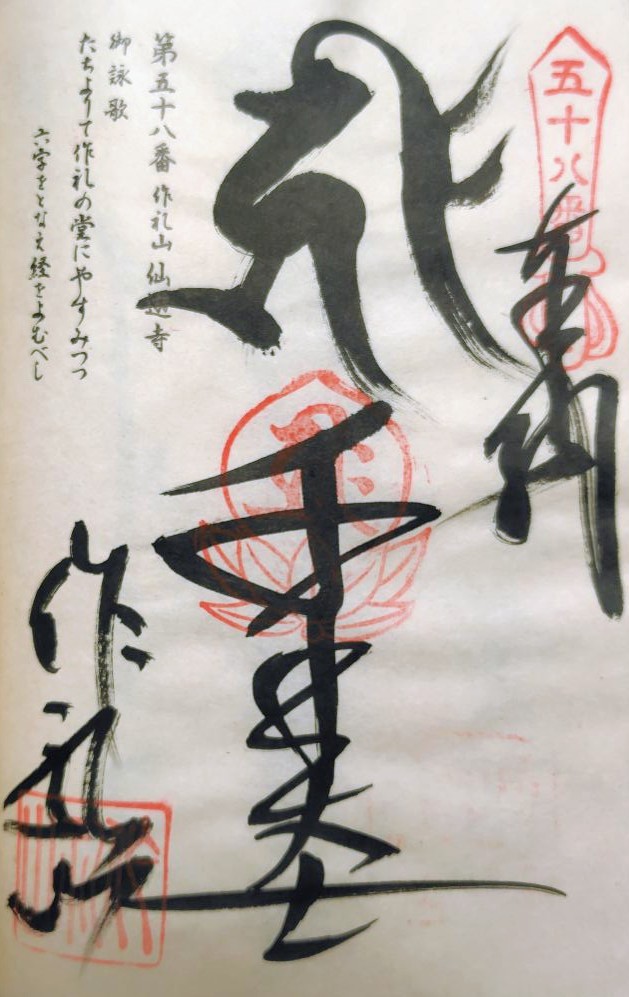 五十八番
奉納
千手大士
作礼山
第五十八番 作礼山 仙遊寺
御詠歌
たちよりて作礼の堂にやすみつつ
六字をとなえ経をよむべし